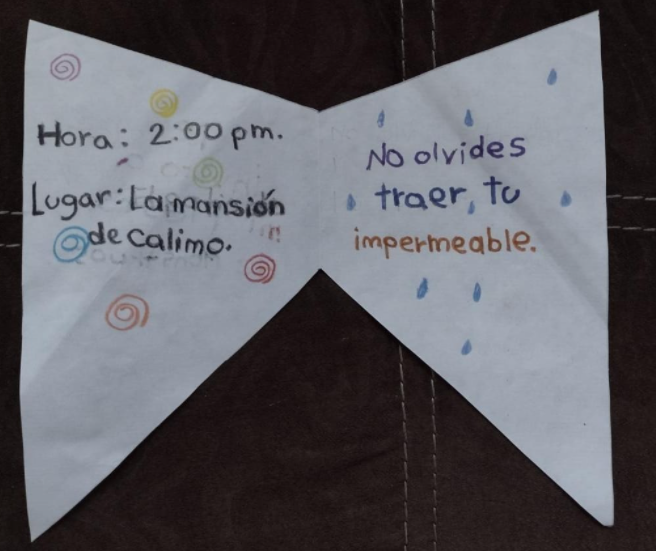 Hora: 2:00 pm.
Lugar: La mansión
de calimo.
No olvides
traer, tu
impermeable.